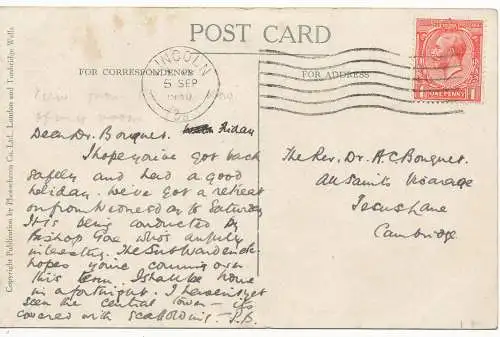 POST CARD
FOR CORRESPONDENCE
FOR ADDRESS
LINCOLN
5 SEP
ONE PENNY
Copyright Publication by Photochrom Co. Ltd., London and Tunbridge Wells.
Dear Dr. Bouquet. Friday
I hope you've got back
safely and had a good
holiday. We've got a retreat
on from Wednesday to Saturday
It is being conducted by
Bishop who's awfully
interesting. The Sub Warden
hopes you're coming over
this term. I shall be home
in a fortnight. I haven't yet
seen the central tower – its
covered with scaffolding –
The Rev. Dr. A C Bouquet.
All Saints Vicarage
Jesus Lane
Cambridge